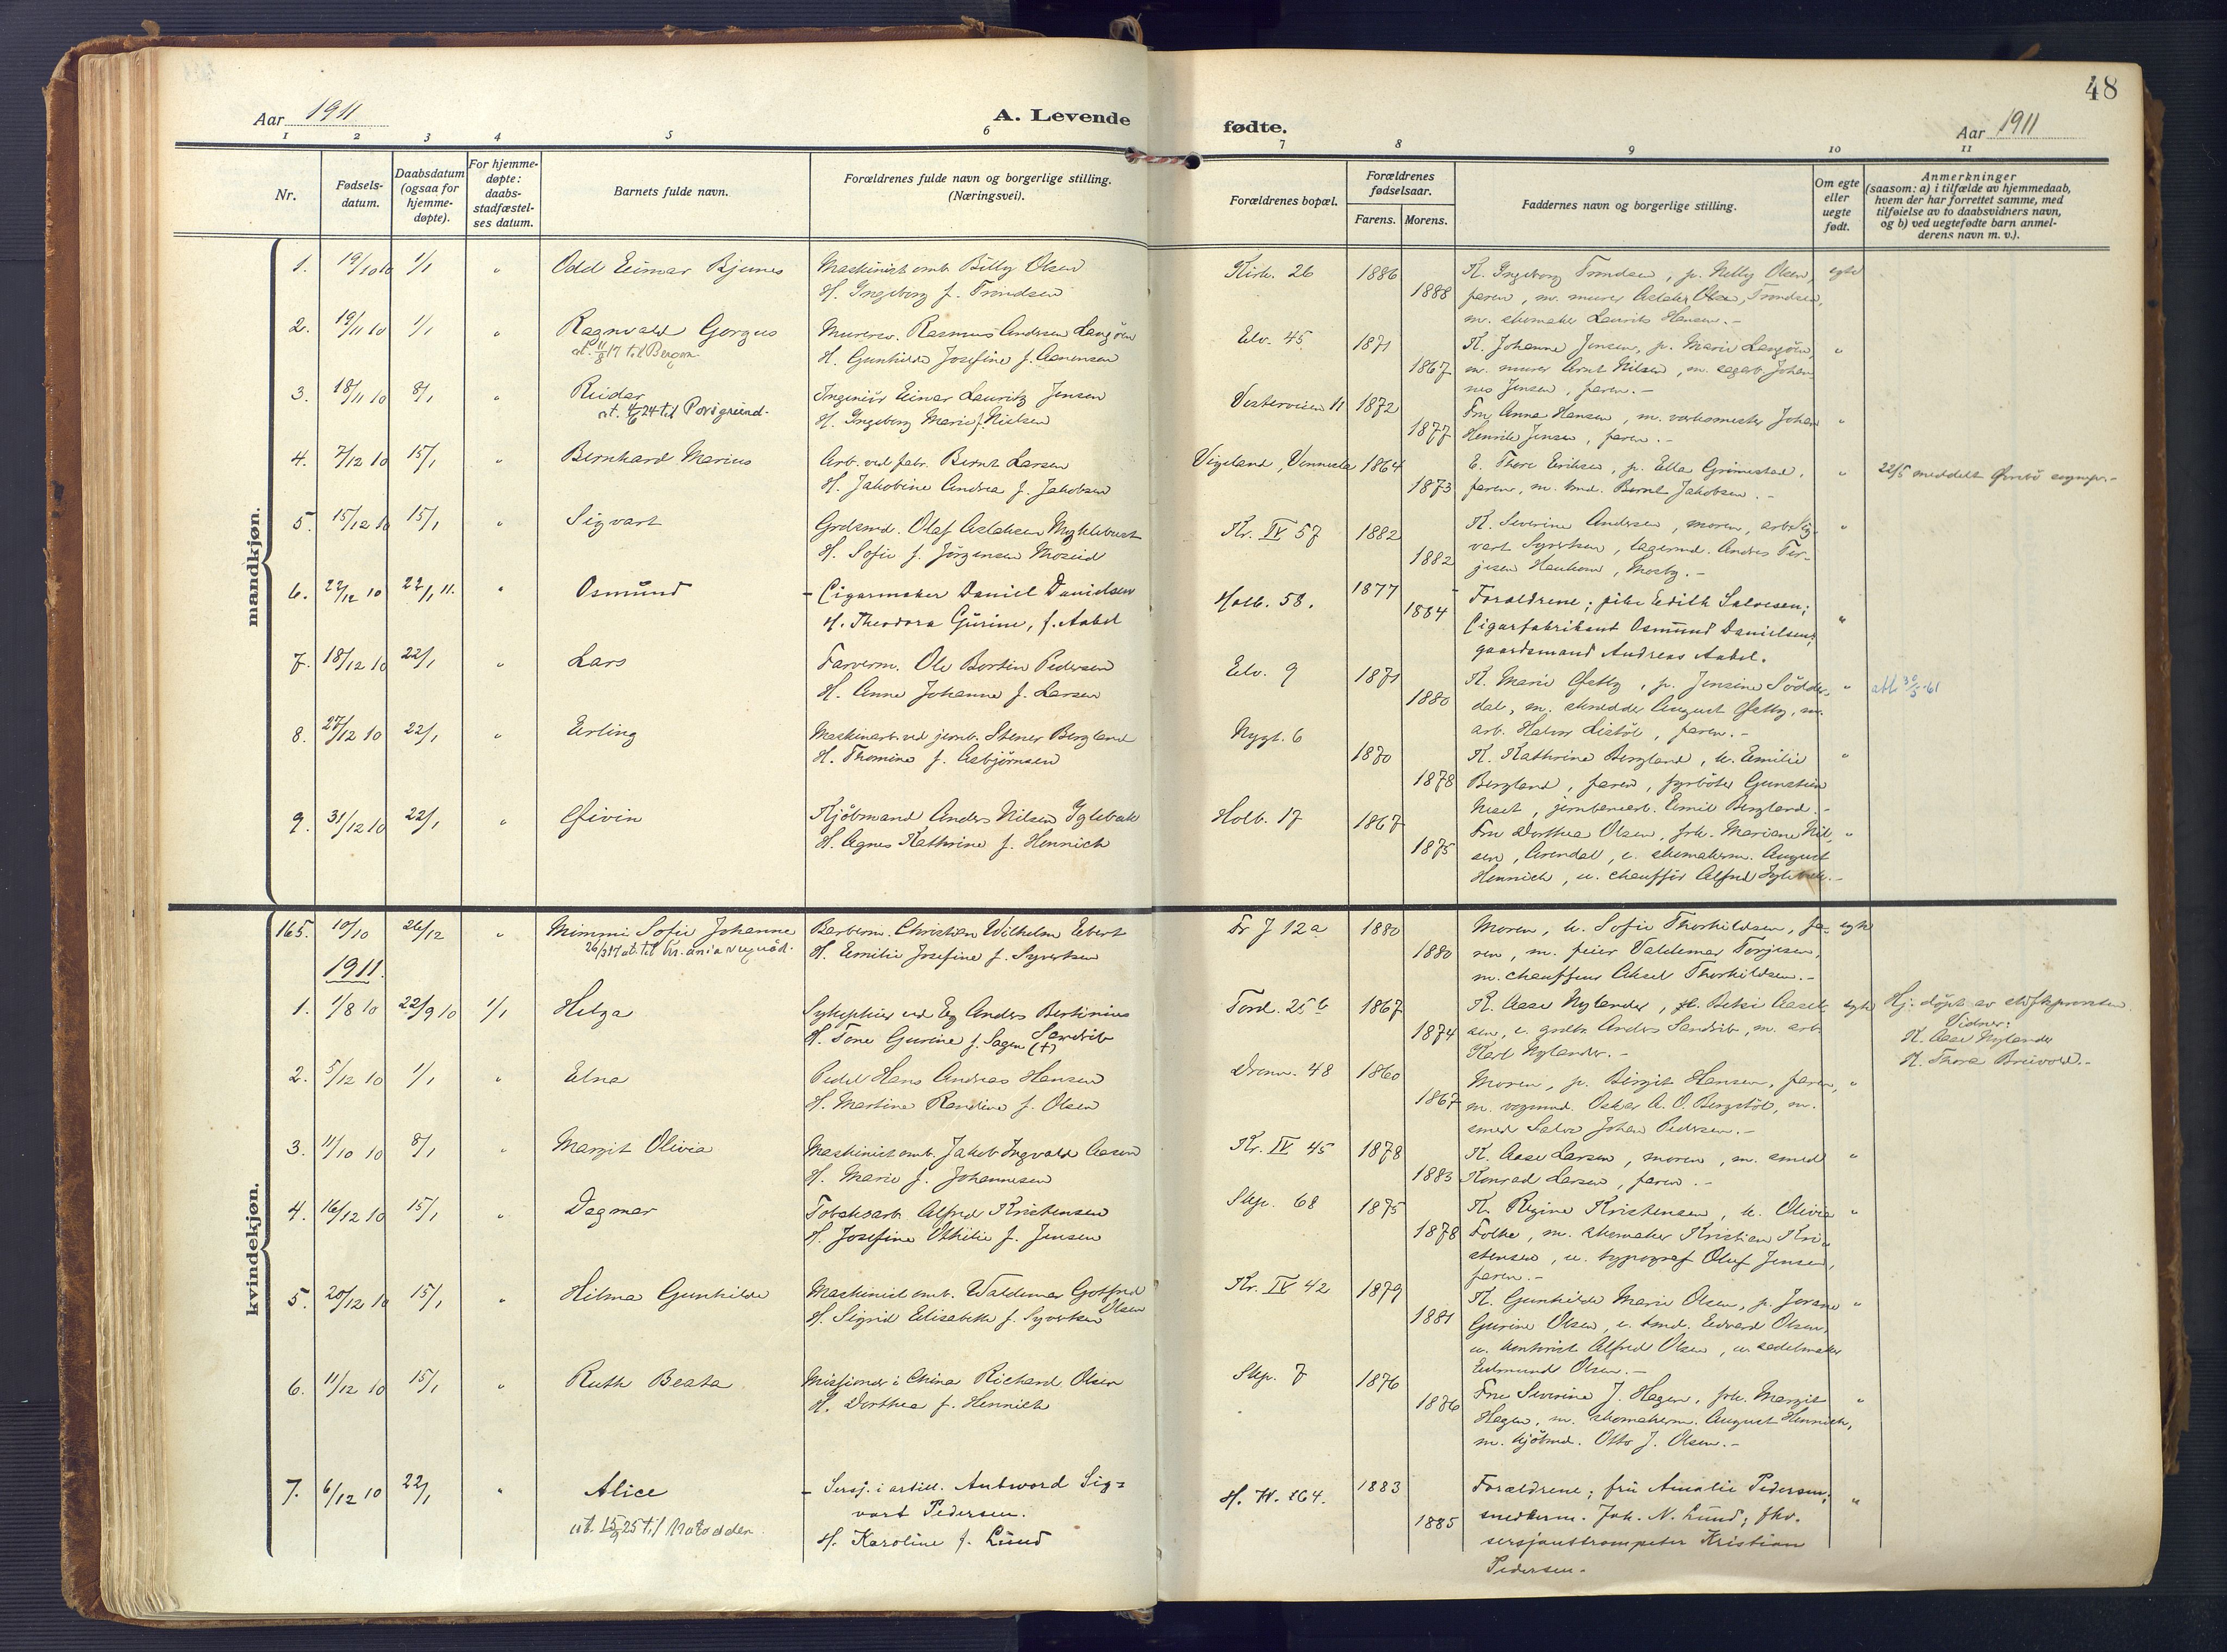 48
Aar 1911
A. Levende
fødte.
Aar 1911
1 2 3 4 5 6 7 8 9 10 11
Nr.
Fødsels-
datum.
Daabsdatum
(ogsaa for
hjemme-
døpte).
For hjemme-
døpte:
daabs-
stadfæstel-
ses datum.
Barnets fulde navn.
Forældrenes fulde navn og borgerlige stilling.
(Næringsvei).
Forældrenes bopæl.
Forældrenes
fødselsaar.
Farens. Morens.
Faddernes navn og borgerlige stilling.
Om egte
eller
uegte
født.
Anmerkninger
(saasom: a) i tilfælde av hjemmedaab,
hvem der har forrettet samme, med
tilføielse av to daabsvidners navn,
og b) ved uegtefødte barn anmel-
derens navn m. v.).
mandkjøn.
1. 19/10 10 1/1 " Odd Eimar Bjunes
Maskinist omb. Billy Olsen
H. Ingeborg f. Trondsen
Kirk. 26 1886 1888
K. Ingeborg Trondsen, p. Nelly Olsen, egte
faren, m. murer Aslak Olsen, Trondsen,
m. skomaker Laurits Hansen.-
2. 19/11 10 1/1 " Ragnvald Gorgus
at. 11/8 17 til Bergen.
Murersv. Rasmus Andersen Langöen
H. Gunhilde Josefine f. Aanensen
Elv. 45 1871 1867
K. Johanne Jensen, p. Marie Langöen, "
m. murer Arnt Nilsen, m. sagarb. Johan-
nes Jensen, faren.-
3. 18/11 10 8/1 " Reidar
at. 4/6 24 til Porsgrund.
Ingeniör Einar Lauritz Jensen
H. Ingeborg Marie f. Nielsen
Vesterveien 11 1872 1877
Fru Anna Hansen, m. verksmester Johan "
Henrik Jensen, faren.-
4. 7/12 10 15/1 " Bernhard Marius
Arb. ved fabr. Bernt Larsen
H. Jakobine Andrea f. Jakobsen
Vigeland, Vennesla 1864 1873
E. Thore Eriksen, p. Ella Grimestad, "
faren, m. tmd. Bernt Jakobsen.-
22/5 meddelt Øvrebö sognepr.-
5. 15/12 10 15/1 " Sigvart
Grdsmd. Olaf Aslaksen Myklebust
H. Sofie f. Jörgensen Moseid
Kr. IV 57 1882 1882
K. Severine Andersen, moren, arb. Sig- "
vart Syvertsen, lagermd. Anders Ter-
jesen Haukom, Mosby.-
6. 22/12 10 22/1 11. " Osmund
- Cigarmaker Daniel Danielsen
H. Theodora Gurine, f. Aabel
Holb. 58. 1877 1884
Forældrene; pike Edith Salvesen; "
Cigarfabrikant Osmund Danielsen;
gaardsmand Andreas Aabel.
7. 18/12 10 22/1 " Lars
Farverm. Ole Bortin Pedersen
H. Anne Johanne f. Larsen
Elv. 9 1871 1880
K. Marie Øseby, p. Jensine Södder- "
dal, m. skredder August Øseby, m.
arb. Halvor Listöl, faren.-
att. 30/5-61
8. 27/12 10 22/1 " Erling
Maskinarb. ved jernb. Stener Bergland
H. Thomine f. Asbjørnsen
Nygt. 6 1870 1878
K. Kathrine Bergland, k. Emilie "
Bergland, faren, fyrböter Gunstein
Neset, jernbanearb. Emil Bergland.-
9. 31/12 10 22/1 " Øivin
Kjöbmand Anders Nilsen Iglebæk
H. Agnes Kathrine f. Hennich
Holb. 17 1867 1875
Fru Dorthea Olsen, frk. Mariane Nil- "
sen, Arendal, u. skomakerm. August
Hennich, u. chaufför Alfred Iglebæk.-
kvindekjøn.
165. 10/10 26/12 " Mimmi Sofie Johanne
26/3 17 at. til Kr.ania
Barberm. Christian Wilhelm Ebert
H. Emilie Josefine f. Syvertsen
Fr J 12a 1880 1880
Moren, k. Sofie Thorkildsen, fa- egte
ren, m. feier Valdemar Torjesen,
m. chauffeur Aksel Thorkildsen.-
1911.
1. 1/8 10 22/9 10 1/1 Helga
Sykepleier ved Eg Anders Bertinius
Sandvik
H. Tone Gurine f. Sagen (+)
Tord. 25 b 1867 1874
K. Aase Nylander, p. Betsi Aasel- egte
sen, u. grdbr. Anders Sandvik, m. arb.
Karl Nylander.-
Hj. döpt av stiftsprovsten.
Vidner:
K. Aase Nylander
K. Thora Breivold.-
2. 5/12 10 1/1 " Elna
Pedel Hans Andreas Hansen
H. Martine Randine f. Olsen
Dronn. 48 1860 1867
Moren, p. Birgit Hansen, faren, "
m. vognmd. Oskar A. O. Bergstöl, m.
smed Salve Johan Pedersen.-
3. 11/10 10 8/1 " Margit Olivia
Maskinist omb. Jakob Ingvald Aasen
H. Marie f. Johannesen
Kr. IV 45 1878 1883
K. Aase Larsen, moren, m. smed "
Konrad Larsen, faren.-
4. 16/12 10 15/1 " Dagmar
Tobaksarb. Alfred Kristensen
H. Josefine Othilie f. Jensen
Skp. 68 1875 1878
K. Regine Kristensen, k. Olivia "
Folke, m. skomaker Kristian Kri-
stensen, u. typograf Oluf Jensen,
faren.-
5. 20/12 10 15/1 " Hilma Gunhilde
Maskinist omb. Valdemar Gotfred
Olsen
H. Sigrid Elisabeth f. Syvertsen
Kr. IV 42 1879 1881
K. Gunhilde Marie Olsen, p. Jorane "
Gurine Olsen, u. tmd. Edvard Olsen,
u. kontorist Alfred Olsen, u. sadelmaker
Edmund Olsen.-
6. 11/12 10 15/1 " Ruth Beata
Missionær i China Richard Olsen
H. Dorthea f. Hennich
Skp. 7 1876 1876
Fru Severine J. Hagen, frk. Margit "
Hagen, m. skomakerm. August Hennich,
m. kjöbmd. Otto J. Olsen.-
7. 6/12 10 22/1 " Alice
ut. 15/9 25 til Notodden.
- Sersj. i artill. Antword Sig=
vart Pedersen.
H. Karoline f. Lund
H. W. 164. 1883 1885
Forældrene; fru Amalie Pedersen; "
snedkerm. Joh. N. Lund; fhv.
sersjanttrompeter Kristian
Pedersen.